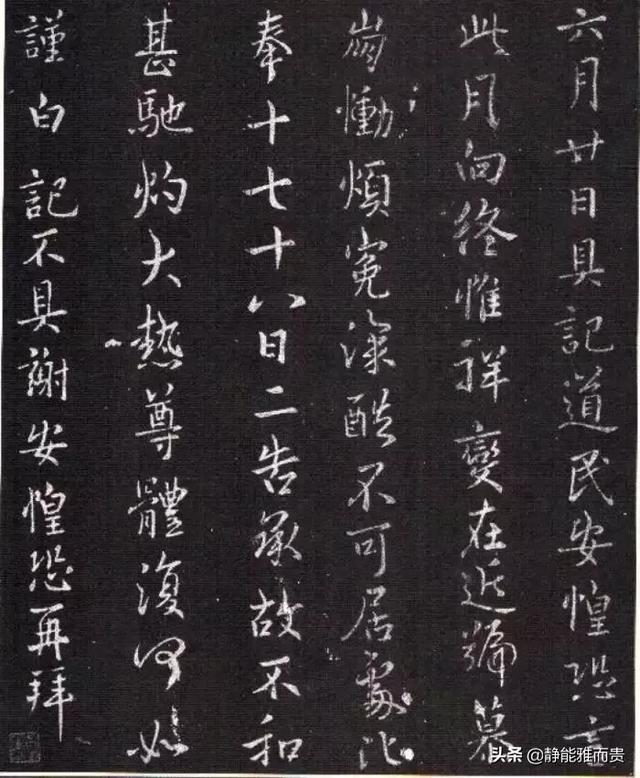 六月廿日具記道民安惶恐言
此月向終惟祥變在近號慕
崩慟煩冤深酷不可居處比
奉十七十八日二告承故不和
甚馳灼大熱尊體復何如
謹白記不具謝安惶恐再拜
头条 @静能雅而贵